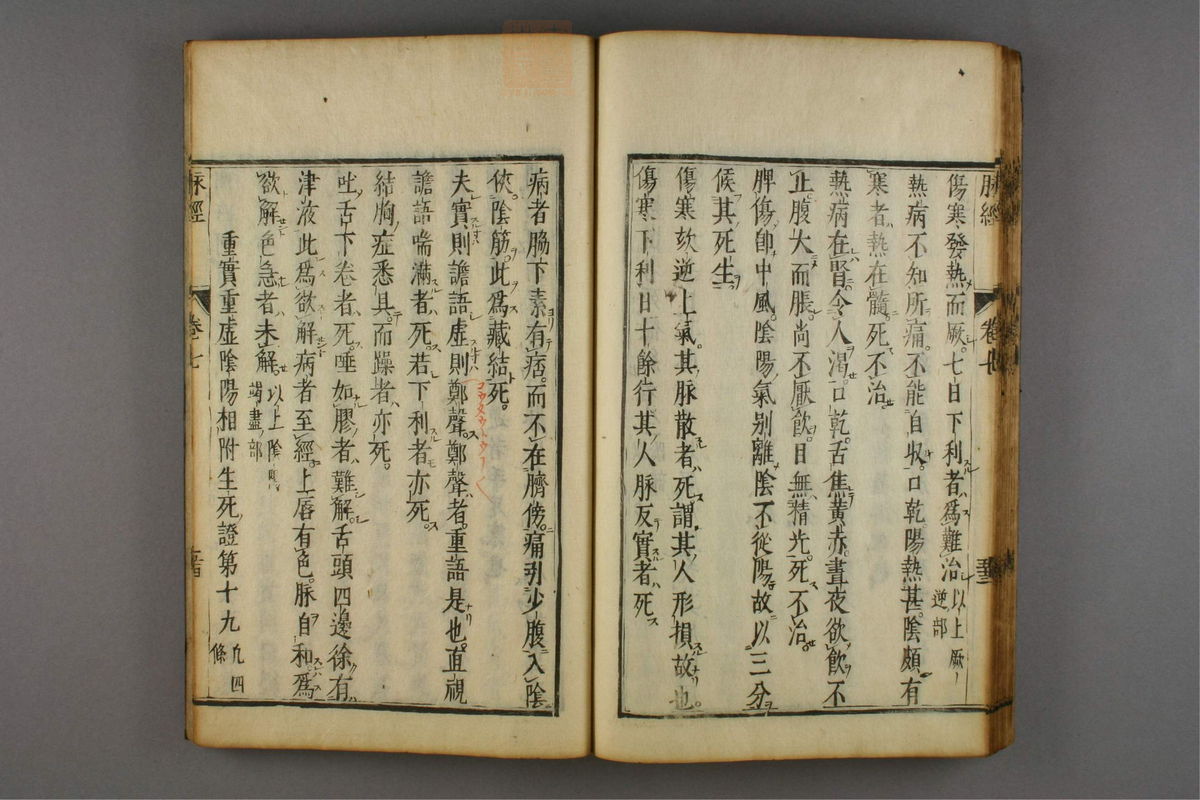 脉經
卷七
傷寒發熱而厥七日下利者爲難治以上厥逆部
熱病不知所痛不能自收口乾陽熱甚陰頗有
寒者熱在髓死不治
熱病在腎令人渴口乾舌焦黄赤晝夜欲飲不
止腹大而脹尚不厭飲目無精光死不治
脾傷即中風陰陽氣别離陰不從陽故以三分
候其死生
傷寒欬逆上氣其脉散者死謂其人形損故也
傷寒下利日十餘行其人脉反實者死
病者脇下素有痞而不在臍傍痛引少腹入陰
俠陰筋此爲藏結死
夫實則譫語虚則鄭聲鄭聲者重語是也直視
譫語喘滿者死若下利者亦死
結胸症悉具而躁者亦死
吐舌下卷者死唾如膠者難解舌頭四邊徐有
津液此爲欲解病者至經上唇有色脉自和爲
欲解色急者未解以上陰陽竭盡部
重實重虚陰陽相附生死證第十九
脉經
卷七